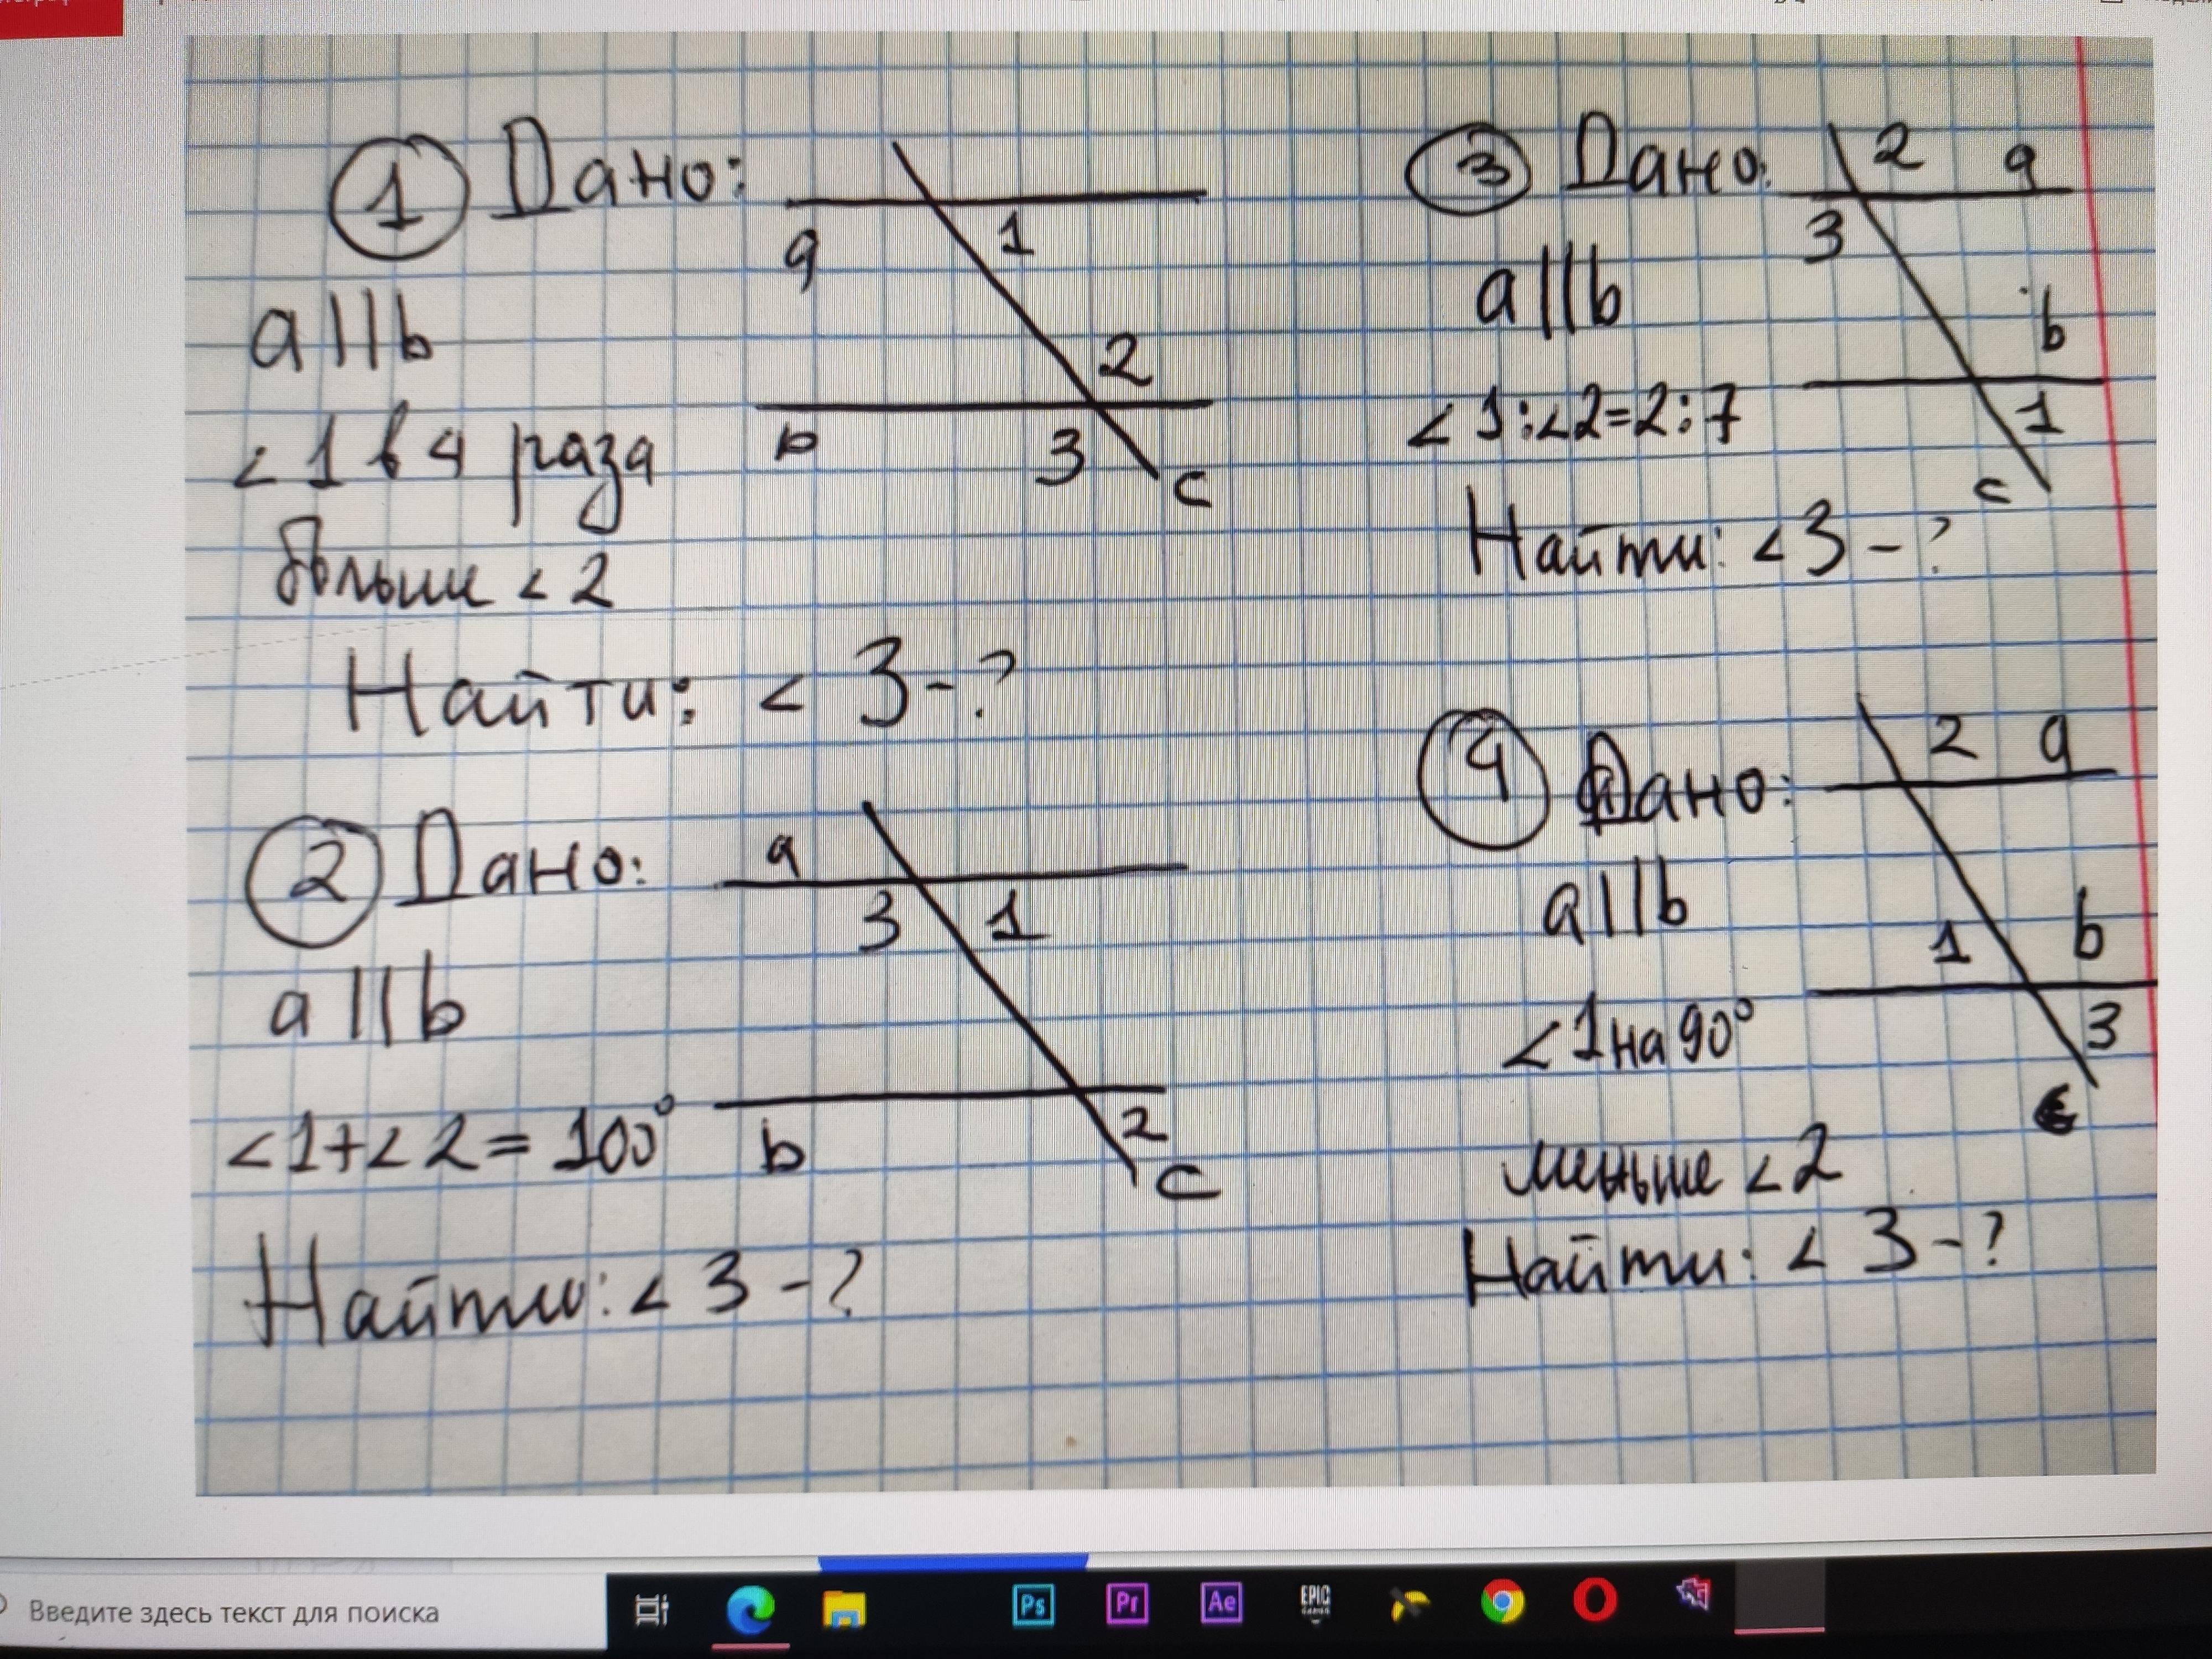 ① Дано:
a
1
2
a||b
b
3
c
<1 в 4 раза
больше <2
Найти: <3-?
② Дано:
a
3
1
a||b
<1+<2=100°
b
2
c
Найти: <3-?
③ Дано:
2
a
3
a||b
b
<1:<2=2:7
1
c
Найти: <3-?
④ Дано:
2
a
a||b
1
b
<1 на 90°
3
c
меньше <2
Найти: <3-?
Введите здесь текст для поиска
Ps
Pr
Ae
EPIC
GAMES